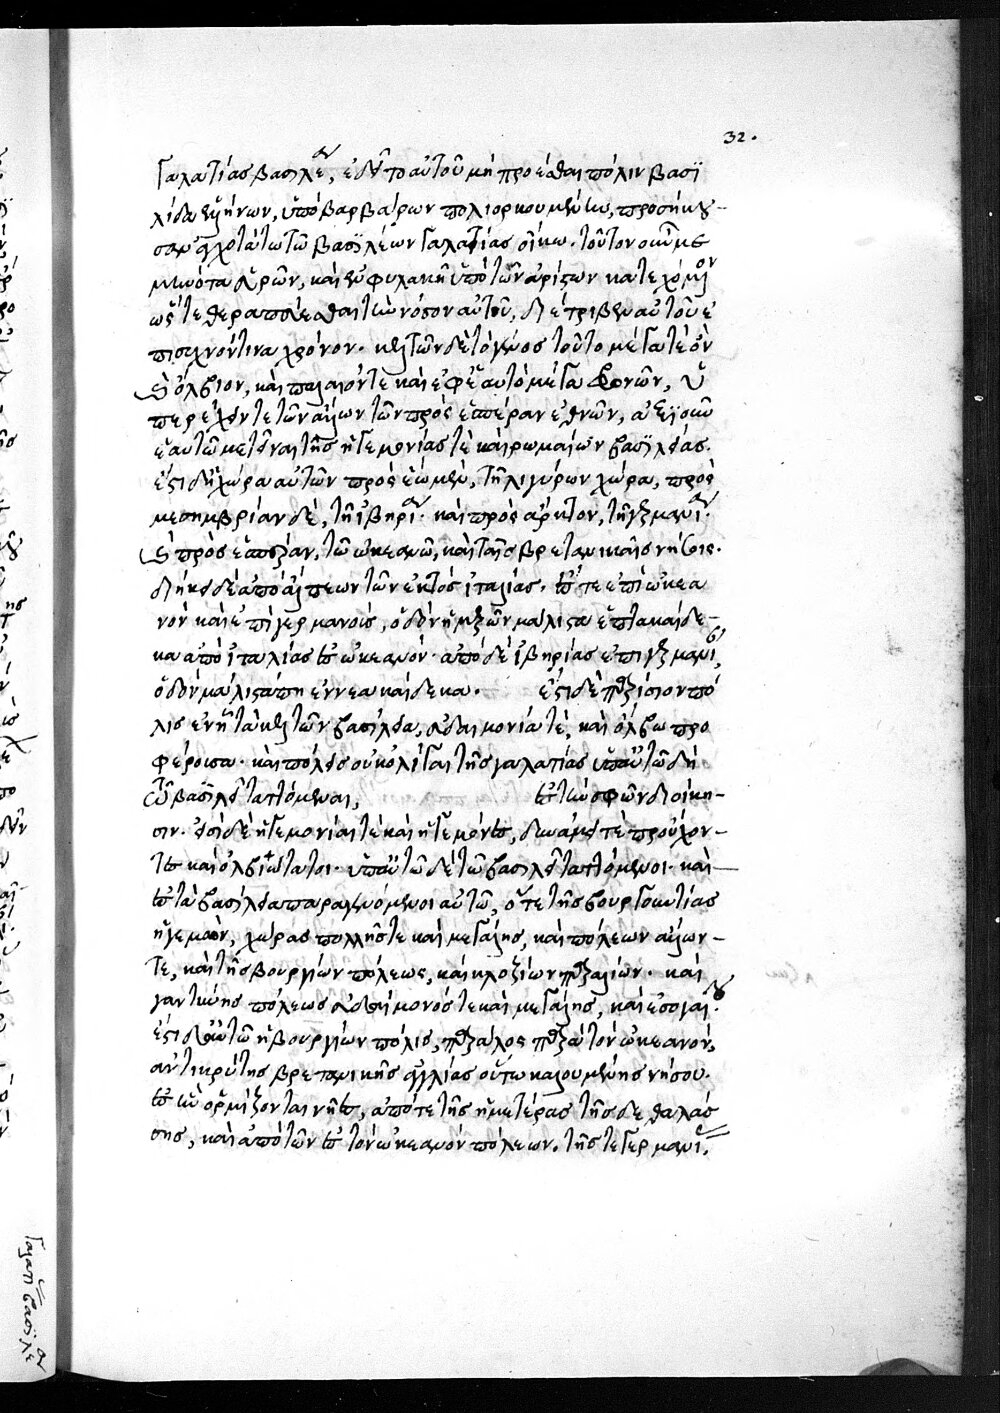 32.
Γαλατίας βασιλέαν, ἐδεῖτο αὐτοῦ μὴ προέσθαι πόλιν βασι
λίδα ἑλλήνων, ὑπὸ βαρβάρων πολιορκουμένην, προσήκου-
σαν ἀγχοτάτω τῶ βασιλέων Γαλατίας οἴκω. τοῦτον οὖν με
μηνότα εὑρὼν, καὶ ἐν φυλακῆ ὑπὸ τῶν ἀρίστων κατεχόμενον
ὥστε θεραπεύεσθαι τὴν νόσον αὐτοῦ, διέτριβεν αὐτοῦ ἐ
πισχνόν τινα χρόνον. κελτῶν δὲ τὸ γένος τοῦτο μέγα τε ὂν
καὶ ὄλβιον, καὶ παλαιόν τε καὶ ἐφ' ἑαυτὸ μέγα φρονῶν, ὑ
περεῖχόν τε τῶν ἄλλων τῶν πρὸς ἑσπέραν ἐθνῶν, ἀξιοῦν
ἑαυτῶ μετεῖναι τῆς ἡγεμονίας τὲ καὶ ρωμαίων βασιλείας.
ἔστι δὲ ἡ χώρα αὐτῶν πρὸς ἕω μὲν, τῆ λιγύρων χώρα, πρὸς
μεσημβρίαν δὲ, τῆ ἰβηρία. καὶ πρὸς ἄρκτον, τῆ γερμανία.
καὶ πρὸς ἑσπέραν, τῶ ὠκεανῶ, καὶ ταῖς βρετανικαῖς νήσοις.
διήκει δὲ ἀπὸ ἄλπεων τῶν ἐκτὸς ἰταλίας. ἔς τε ἐπὶ ὠκεα
νὸν καὶ ἐπὶ γερμανοὺς, ὁδὸν ἡμερῶν μάλιστα ἑπτακαίδε-
κα ἀπὸ ἰταλίας ἐς ὠκεανόν. ἀπὸ δὲ ἰβηρίας ἐπὶ γερμανοὺς,
ὁδὸν μάλιστά πη ἐννεακαίδεκα. ἔστι δὲ παρίσιον πό
λις ἐν ἧ τὰ κελτῶν βασίλεια, εὐδαιμονία τὲ, καὶ ὄλβω προ
φέρουσα. καὶ πόλεις οὐκ ὀλίγαι τῆς γαλατίας ὑπ' αὐτῶ δὴ
τῶ βασιλεῖ ταττόμεναι, ἐς τὴν σφῶν διοίκη-
σιν. εἰσὶ δὲ ἡγεμονίαι τὲ καὶ ἡγεμόνες, δυνάμει τὲ προὔχον-
τες καὶ ὀλβιώτατοι. ὑπ' αὐτῶ δὲ τῶ βασιλεῖ ταττόμενοι. καὶ
ἐς τὰ βασίλεια παραγενόμενοι αὐτῶ, ὅ τε τῆς βουργουντίας
ἡγεμὼν, χώρας πολλῆς τε καὶ μεγάλης, καὶ πόλεων ἄλλων
τε, καὶ τῆς βουργίων πόλεως, καὶ κλοζίων παραλίων. καὶ
γαντύνης πόλεως εὐδαίμονός τε καὶ μεγάλης, καὶ μεσογαίου.
ἔστι δὲ αὐτῶ ἡ βουργίων πόλις, πάραλος παρ' αὐτὸν ὠκεανὸν,
ἀντικρὺ τῆς βρετανικῆς ἀγγλίας οὕτω καλουμένης νήσου.
ἐς ἣν ὁρμίζονται νῆες, ἀπό τε τῆς ἡμετέρας τῆσδε θαλάσ
σης, καὶ ἀπὸ τῶν ἐς τὸν ὠκεανὸν πόλεων. τῆς τε γερμανίας.
Γαλατίας βασιλέαν